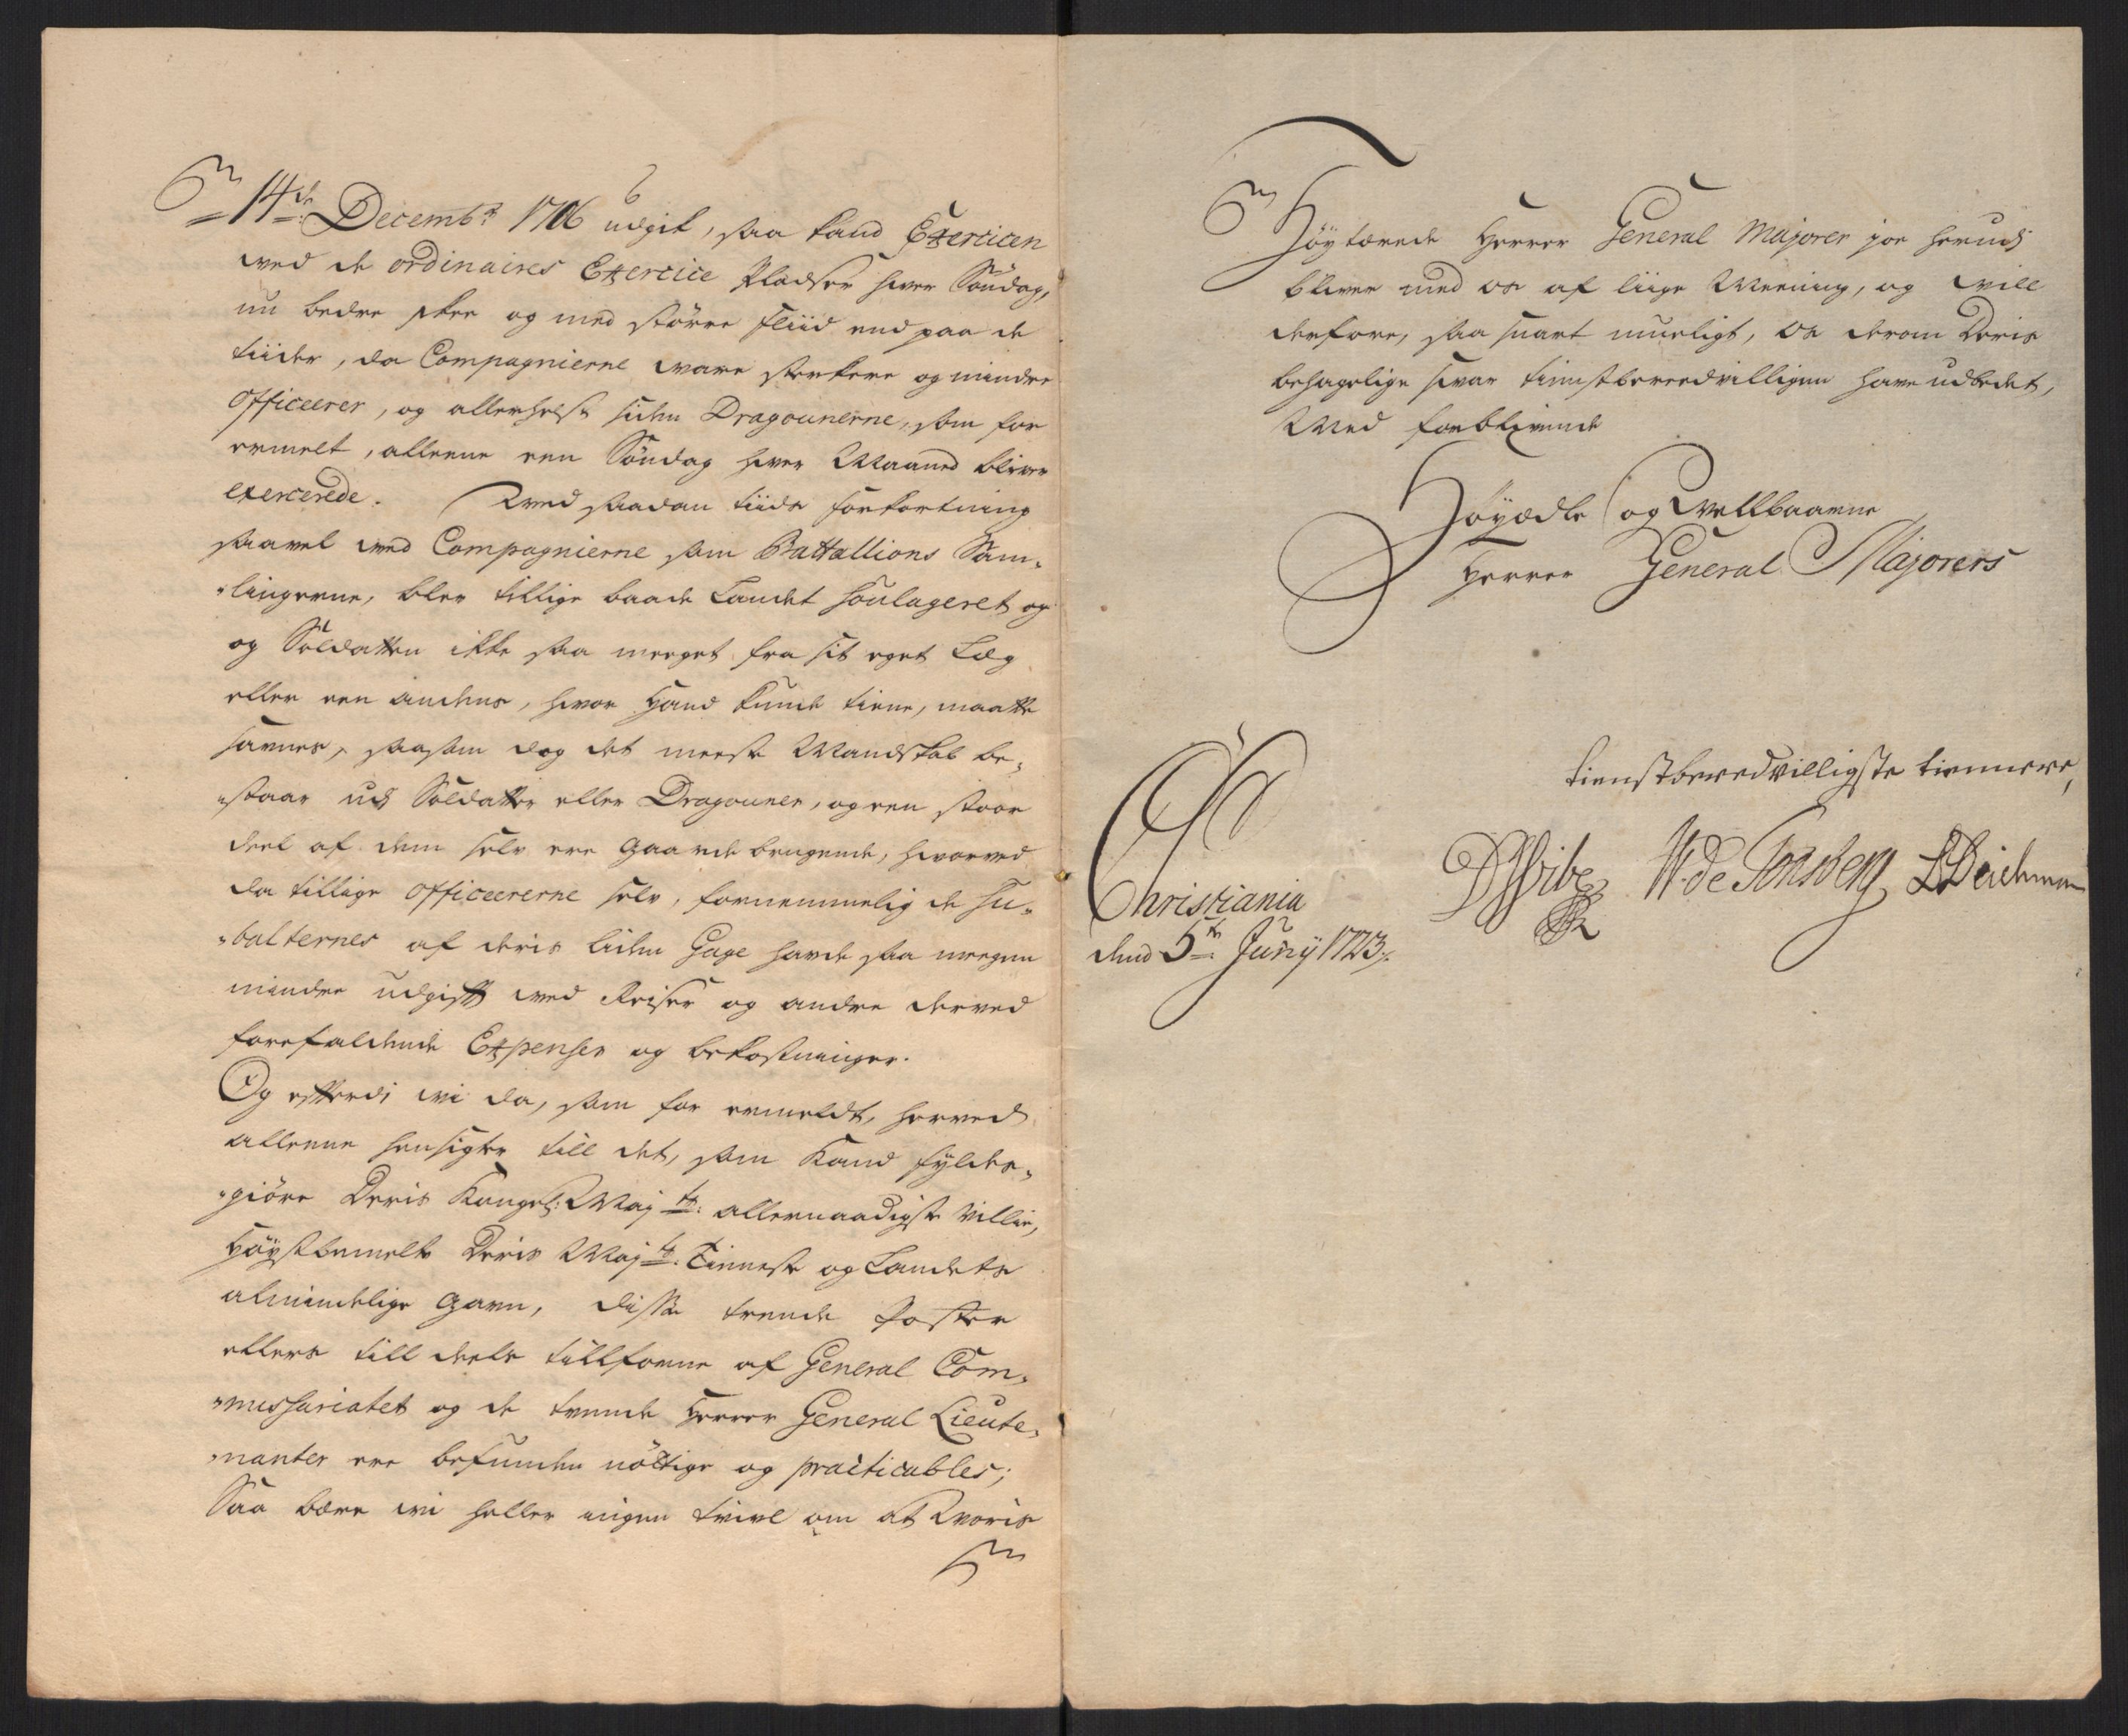 14de Decembr 1706 udgik, saa kand Exercicen
ved de ordinaires Exercice Pladser hver Söndag,
nu bedre skee og med större fliid end paa de
tiider, da Compagnierne vare sterkere og mindre
Officeerer, og allerhelst siden Dragounerne, som for
ermelt, alleene een Söndag hver Maaned bliver
exercerede. Ved saadan tiids forkortning
saavel ved Compagnierne som Battallions Sam-
lingerne, blev tillige baade Landet soulageret og
og Soldatten ikke saa meeget fra sit eget Læg
eller een andens, hvor hand kunde tiene, maatte
savnes, saasom dog det meeste Mandskab be-
staar ud Soldatter eller Dragouner, og een stoor
deel af dem selv ere gaarde brugende, hvorved
da tillige Officeererne selv, fornemmelig de su-
balternes af deris liden Gage havde saa meegen
mindre udgift ved Reiser og andre derved
forefaldende Expenser og bekostninger.
Og efterdi vi da, som for ermeldt, herved
alleene hensigter till det, som kand fyldest-
giöre Deris Kongel: Mayts: allernaadigste Villie,
höystbemelte Deris Mayts: Tienneste og Landets
almindelige gavn, disse trende Poster
ellers till deels tillforne af General Com-
missariatet og de tvende Herrer General Lieute-
nanter ere befunden nöttige og practicables;
Saa bære vi heller ingen tvivl om at Voris
Höytærede Herrer General Majorer jo herudj
bliver med os af liige Meening, og vill
derfore, saa snart mueligt, os derom Deris
behagelige svar tienstberredvilligen have udbedet,
Med forblivende
Höyædle og Vellbaarne
Herrer General Majorers
tienstberedvilligste tiennere,
Christiania
dend 5te Junÿ 1723.
DWibe W. de Tonsberg BDeichman